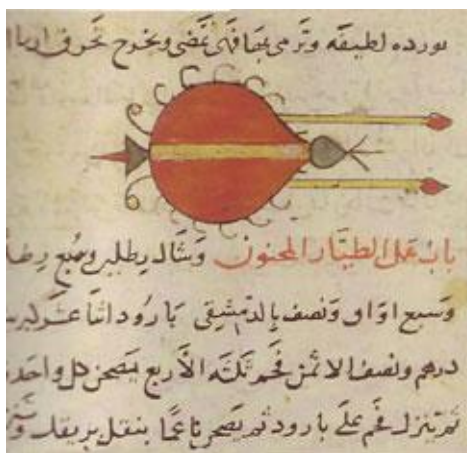 بورده لطيفه وترمى بها فهى تمضى وتخرج تحرف
باب عمل الطيار المجنون وشاله رطلين وسبع
وسبع اواق ونصف بالدمشقى بارود اثنا عشر
درهم ونصف الا ثمن فحم ثلثه الاربع يصحن كل واحد
ثم تنزل فحم على بارود ثم يصحن ناعما بنقل بريقك